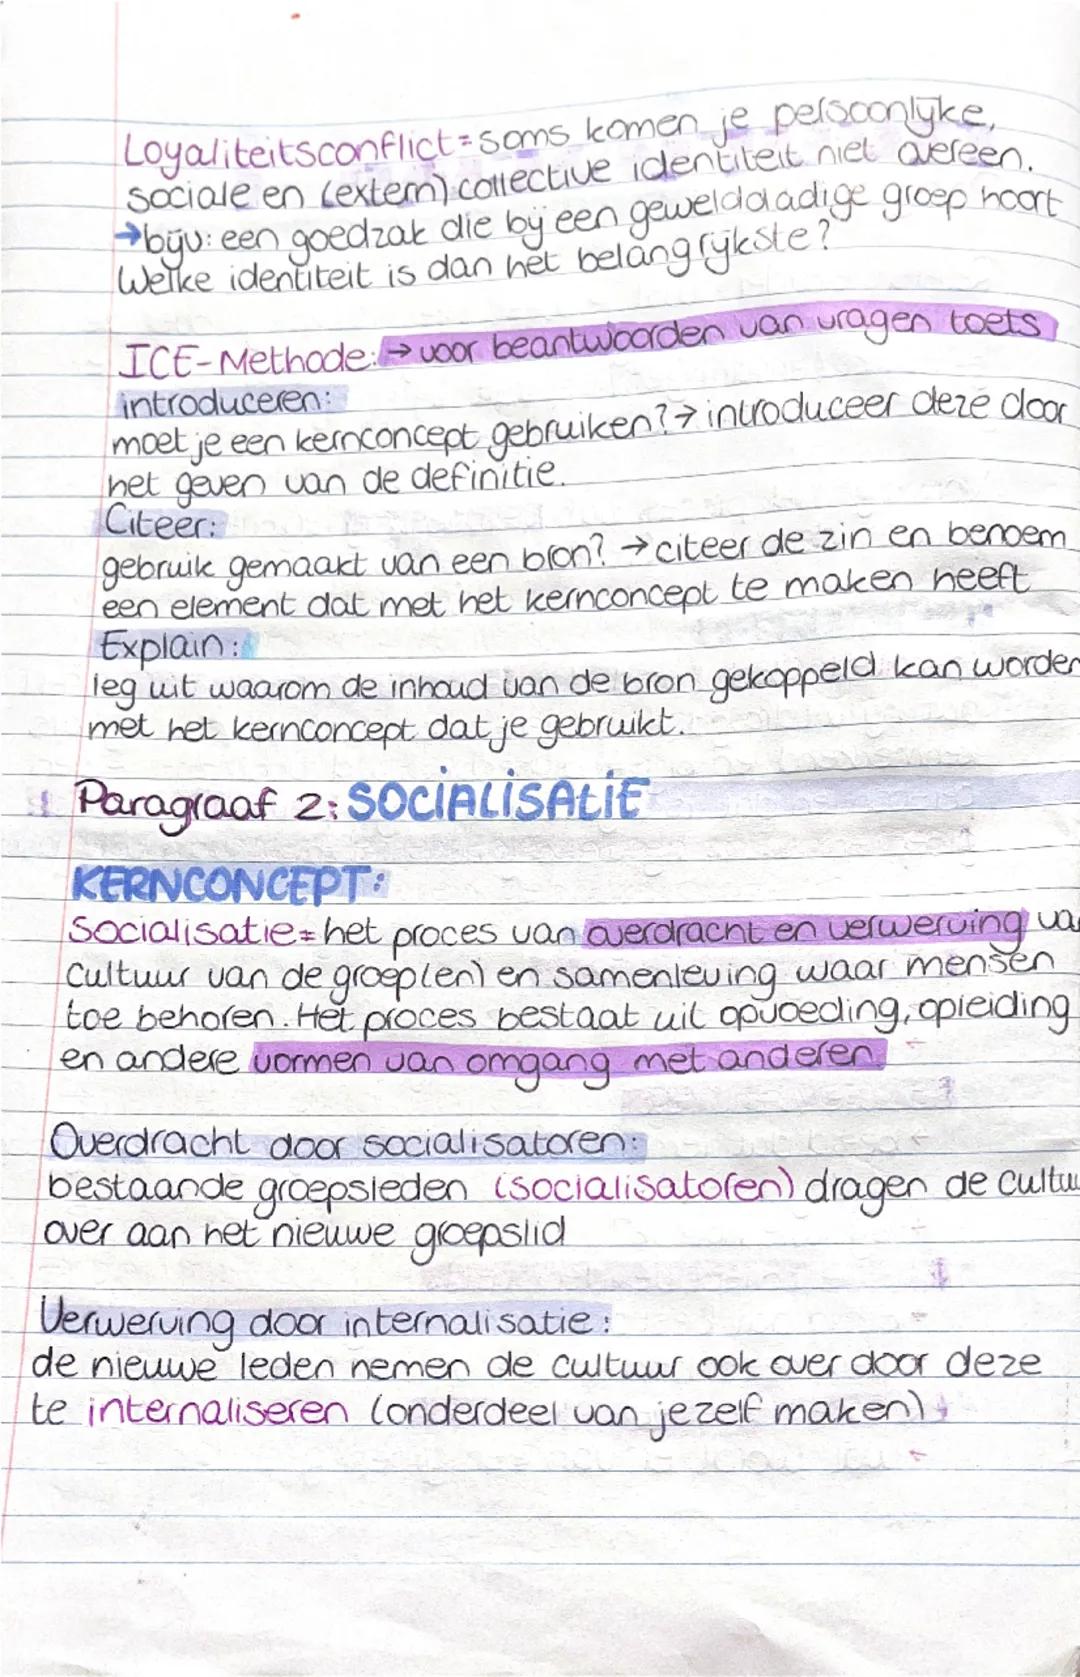 Loyaliteitsconflict = soms komen je persoonlijke,
sociale en (extern) collective identiteit niet overeen.
→ bijv: een goedzak die bij een gewelddadige groep hoort
Welke identiteit is dan het belangrijkste?
ICE-Methode: → voor beantwoorden van vragen toets
introduceren:
moet je een kernconcept gebruiken? → introduceer deze door
het geven van de definitie.
Citeer:
gebruik gemaakt van een bron? → citeer de zin en benoem
een element dat met het kernconcept te maken heeft
Explain:
leg uit waarom de inhoud van de bron gekoppeld kan worden
met het kernconcept dat je gebruikt.
Paragraaf 2: SOCIALISATIE
KERNCONCEPT:
Socialisatie = het proces van overdracht en verwerving va
cultuur van de groep(en) en samenleving waar mensen
toe behoren. Het proces bestaat uit opvoeding, opleiding
en andere vormen van omgang met anderen
Overdracht door socialisatoren:
bestaande groepsleden (socialisatoren) dragen de cultuu
over aan het nieuwe groepslid
Verwerving door internalisatie:
de nieuwe leden nemen de cultuur ook over door deze
te internaliseren (onderdeel van jezelf maken)